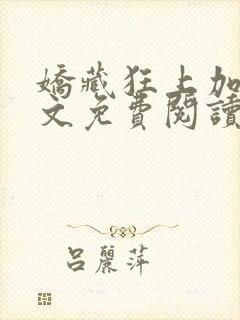 嬌藏狂上加
文免費閱讀
呂麗萍